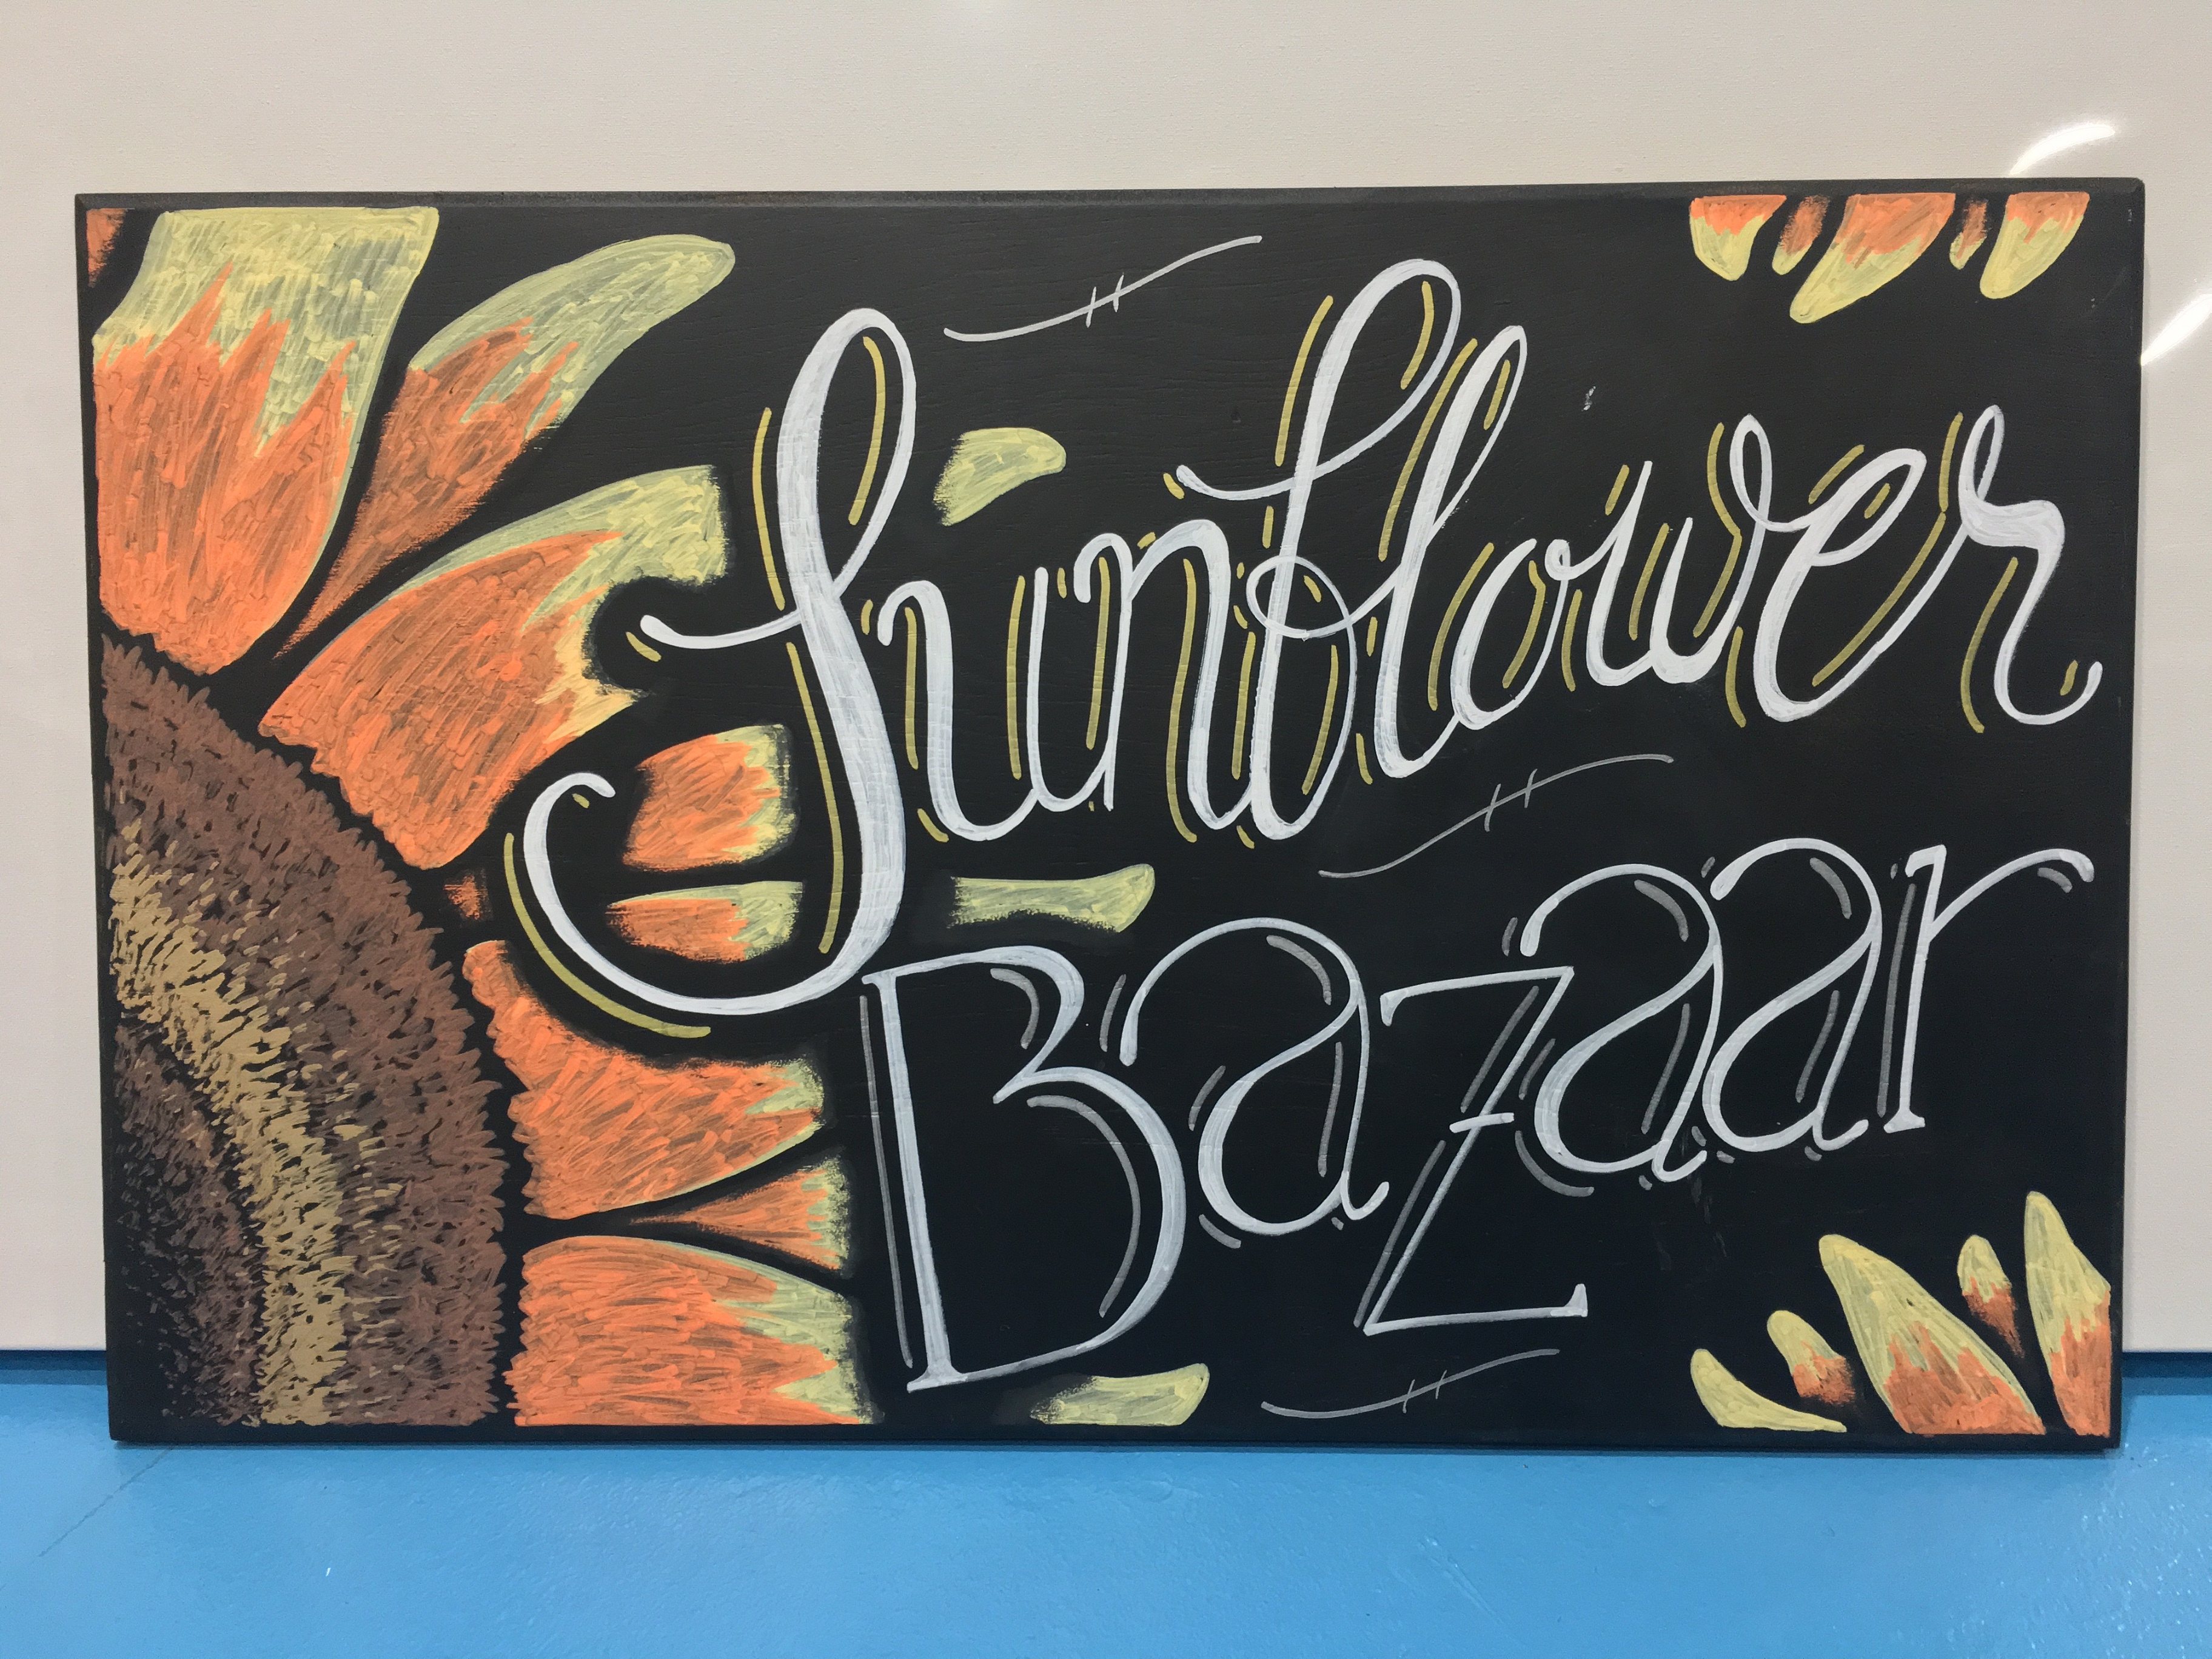 Sunflower
Bazaar